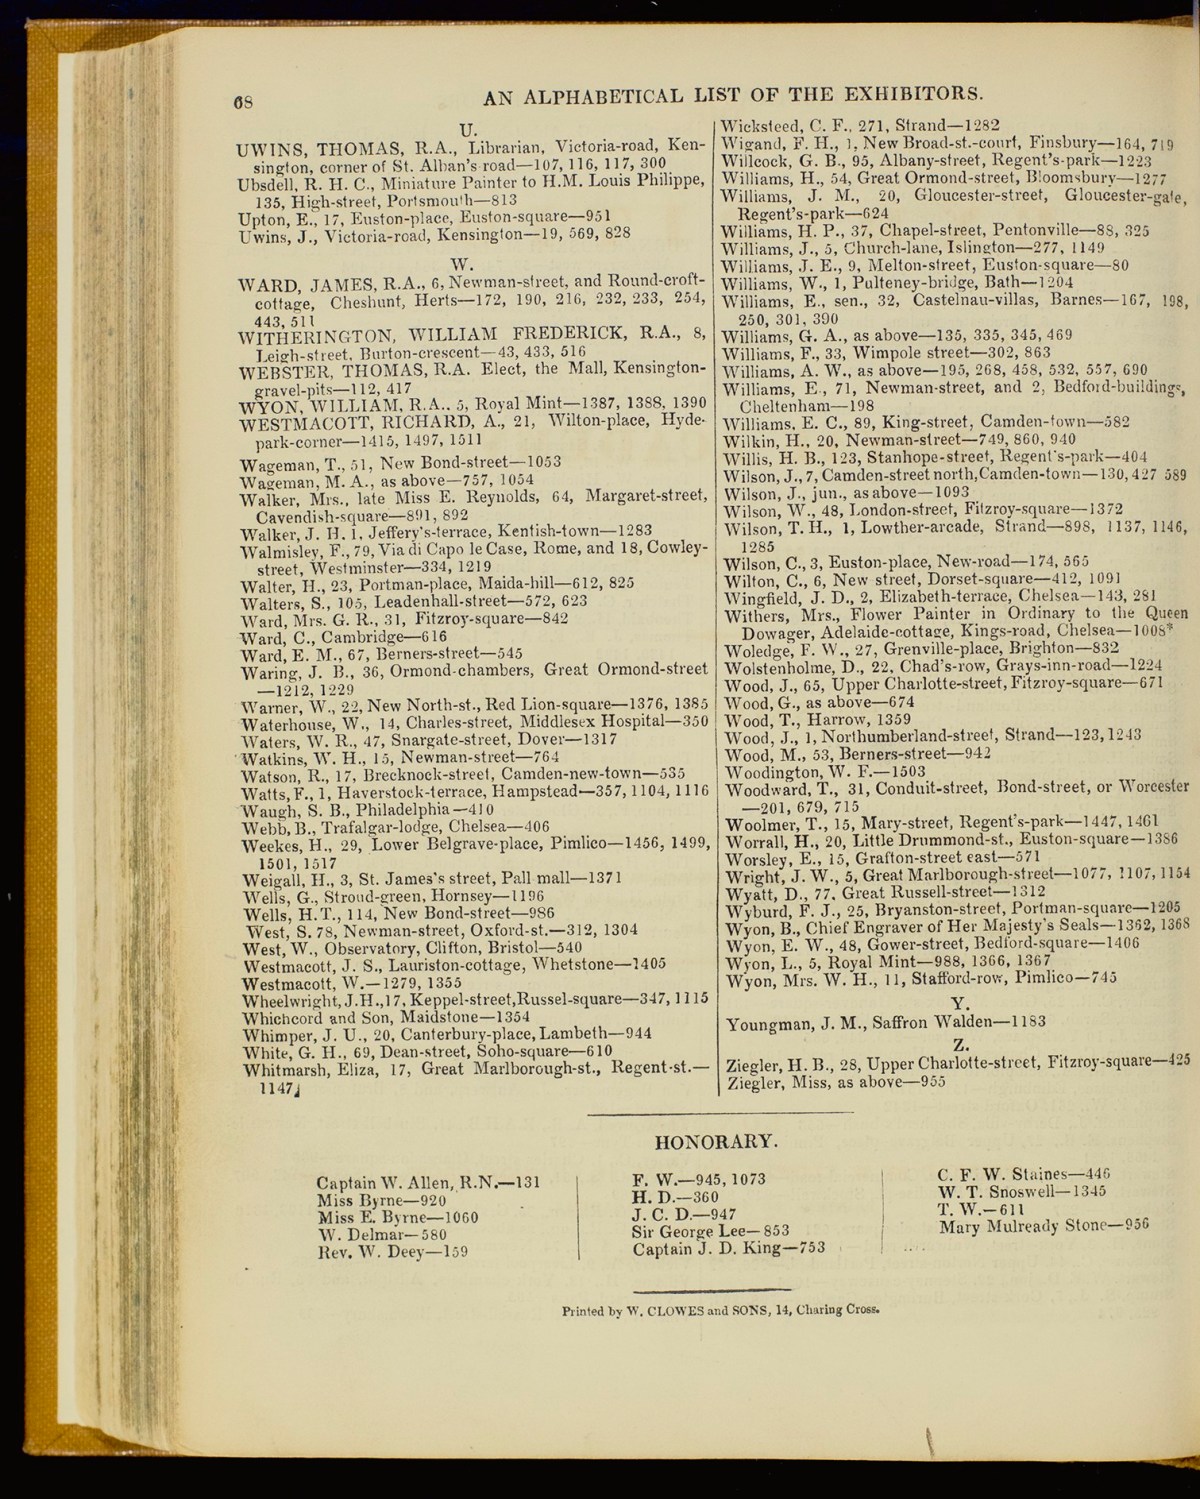 68
AN ALPHABETICAL LIST OF THE EXHIBITORS.
U.
UWINS, THOMAS, R.A., Librarian, Victoria-road, Ken-
sington, corner of St. Alban's-road—107, 116, 117, 300
Ubsdell, R. H. C., Miniature Painter to H.M. Louis Philippe,
135, High-street, Portsmouth—813
Upton, E., 17, Euston-place, Euston-square—951
Uwins, J., Victoria-road, Kensington—19, 569, 828
W.
WARD, JAMES, R.A., 6, Newman-street, and Round-croft-
cottage, Cheshunt, Herts—172, 190, 216, 232, 233, 254,
443, 511
WITHERINGTON, WILLIAM FREDERICK, R.A., 8,
Leigh-street, Burton-crescent—43, 433, 516
WEBSTER, THOMAS, R.A. Elect, the Mall, Kensington-
gravel-pits—112, 417
WYON, WILLIAM, R.A., 5, Royal Mint—1387, 1388, 1390
WESTMACOTT, RICHARD, A., 21, Wilton-place, Hyde-
park-corner—1415, 1497, 1511
Wageman, T., 51, New Bond-street—1053
Wageman, M. A., as above—757, 1054
Walker, Mrs., late Miss E. Reynolds, 64, Margaret-street,
Cavendish-square—891, 892
Walker, J. H. 1, Jeffery's-terrace, Kentish-town—1283
Walmisley, F., 79, Via di Capo le Case, Rome, and 18, Cowley-
street, Westminster—334, 1219
Walter, H., 23, Portman-place, Maida-hill—612, 825
Walters, S., 105, Leadenhall-street—572, 623
Ward, Mrs. G. R., 31, Fitzroy-square—842
Ward, C., Cambridge—616
Ward, E. M., 67, Berners-street—545
Waring, J. B., 36, Ormond-chambers, Great Ormond-street
—1212, 1229
Warner, W., 22, New North-st., Red Lion-square—1376, 1385
Waterhouse, W., 14, Charles-street, Middlesex Hospital—350
Waters, W. R., 47, Snargate-street, Dover—1317
Watkins, W. H., 15, Newman-street—764
Watson, R., 17, Brecknock-street, Camden-new-town—535
Watts, F., 1, Haverstock-terrace, Hampstead—357, 1104, 1116
Waugh, S. B., Philadelphia—410
Webb, B., Trafalgar-lodge, Chelsea—406
Weekes, H., 29, Lower Belgrave-place, Pimlico—1456, 1499,
1501, 1517
Weigall, H., 3, St. James's street, Pall mall—1371
Wells, G., Stroud-green, Hornsey—1196
Wells, H. T., 114, New Bond-street—986
West, S. 78, Newman-street, Oxford-st.—312, 1304
West, W., Observatory, Clifton, Bristol—540
Westmacott, J. S., Lauriston-cottage, Whetstone—1405
Westmacott, W.—1279, 1355
Wheelwright, J.H., 17, Keppel-street, Russel-square—347, 1115
Whichcord and Son, Maidstone—1354
Whimper, J. U., 20, Canterbury-place, Lambeth—944
White, G. H., 69, Dean-street, Soho-square—610
Whitmarsh, Eliza, 17, Great Marlborough-st., Regent-st.—
1147
Wicksteed, C. F., 271, Strand—1282
Wigand, F. H., 1, New Broad-st.-court, Finsbury—164, 719
Willcock, G. B., 95, Albany-street, Regent's-park—1223
Williams, H., 54, Great Ormond-street, Bloomsbury—1277
Williams, J. M., 20, Gloucester-street, Gloucester-gate,
Regent's-park—624
Williams, H. P., 37, Chapel-street, Pentonville—88, 325
Williams, J., 5, Church-lane, Islington—277, 1149
Williams, J. E., 9, Melton-street, Euston-square—80
Williams, W., 1, Pulteney-bridge, Bath—1204
Williams, E., sen., 32, Castelnau-villas, Barnes—167, 198,
250, 301, 390
Williams, G. A., as above—135, 335, 345, 469
Williams, F., 33, Wimpole street—302, 863
Williams, A. W., as above—195, 268, 458, 532, 557, 690
Williams, E., 71, Newman-street, and 2, Bedford-buildings,
Cheltenham—198
Williams, E. C., 89, King-street, Camden-town—582
Wilkin, H., 20, Newman-street—749, 860, 940
Willis, H. B., 123, Stanhope-street, Regent's-park—404
Wilson, J., 7, Camden-street north, Camden-town—130, 427 589
Wilson, J., jun., as above—1093
Wilson, W., 48, London-street, Fitzroy-square—1372
Wilson, T. H., 1, Lowther-arcade, Strand—898, 1137, 1146,
1285
Wilson, C., 3, Euston-place, New-road—174, 565
Wilton, C., 6, New street, Dorset-square—412, 1091
Wingfield, J. D., 2, Elizabeth-terrace, Chelsea—143, 281
Withers, Mrs., Flower Painter in Ordinary to the Queen
Dowager, Adelaide-cottage, Kings-road, Chelsea—1008*
Woledge, F. W., 27, Grenville-place, Brighton—832
Wolstenholme, D., 22, Chad's-row, Grays-inn-road—1224
Wood, J., 65, Upper Charlotte-street, Fitzroy-square—671
Wood, G., as above—674
Wood, T., Harrow, 1359
Wood, J., 1, Northumberland-street, Strand—123, 1243
Wood, M., 53, Berners-street—942
Woodington, W. F.—1503
Woodward, T., 31, Conduit-street, Bond-street, or Worcester
—201, 679, 715
Woolmer, T., 15, Mary-street, Regent's-park—1447, 1461
Worrall, H., 20, Little Drummond-st., Euston-square—1386
Worsley, E., 15, Grafton-street east—571
Wright, J. W., 5, Great Marlborough-street—1077, 1107, 1154
Wyatt, D., 77, Great Russell-street—1312
Wyburd, F. J., 25, Bryanston-street, Portman-square—1205
Wyon, B., Chief Engraver of Her Majesty's Seals—1362, 1368
Wyon, E. W., 48, Gower-street, Bedford-square—1406
Wyon, L., 5, Royal Mint—988, 1366, 1367
Wyon, Mrs. W. H., 11, Stafford-row, Pimlico—745
Y.
Youngman, J. M., Saffron Walden—1183
Z.
Ziegler, H. B., 28, Upper Charlotte-street, Fitzroy-square—425
Ziegler, Miss, as above—955
HONORARY.
Captain W. Allen, R.N.—131
Miss Byrne—920
Miss E. Byrne—1060
W. Delmar—580
Rev. W. Deey—159
F. W.—945, 1073
H. D.—360
J. C. D.—947
Sir George Lee—853
Captain J. D. King—753
C. F. W. Staines—446
W. T. Snoswell—1345
T. W.—611
Mary Mulready Stone—956
Printed by W. CLOWES and SONS, 14, Charing Cross.